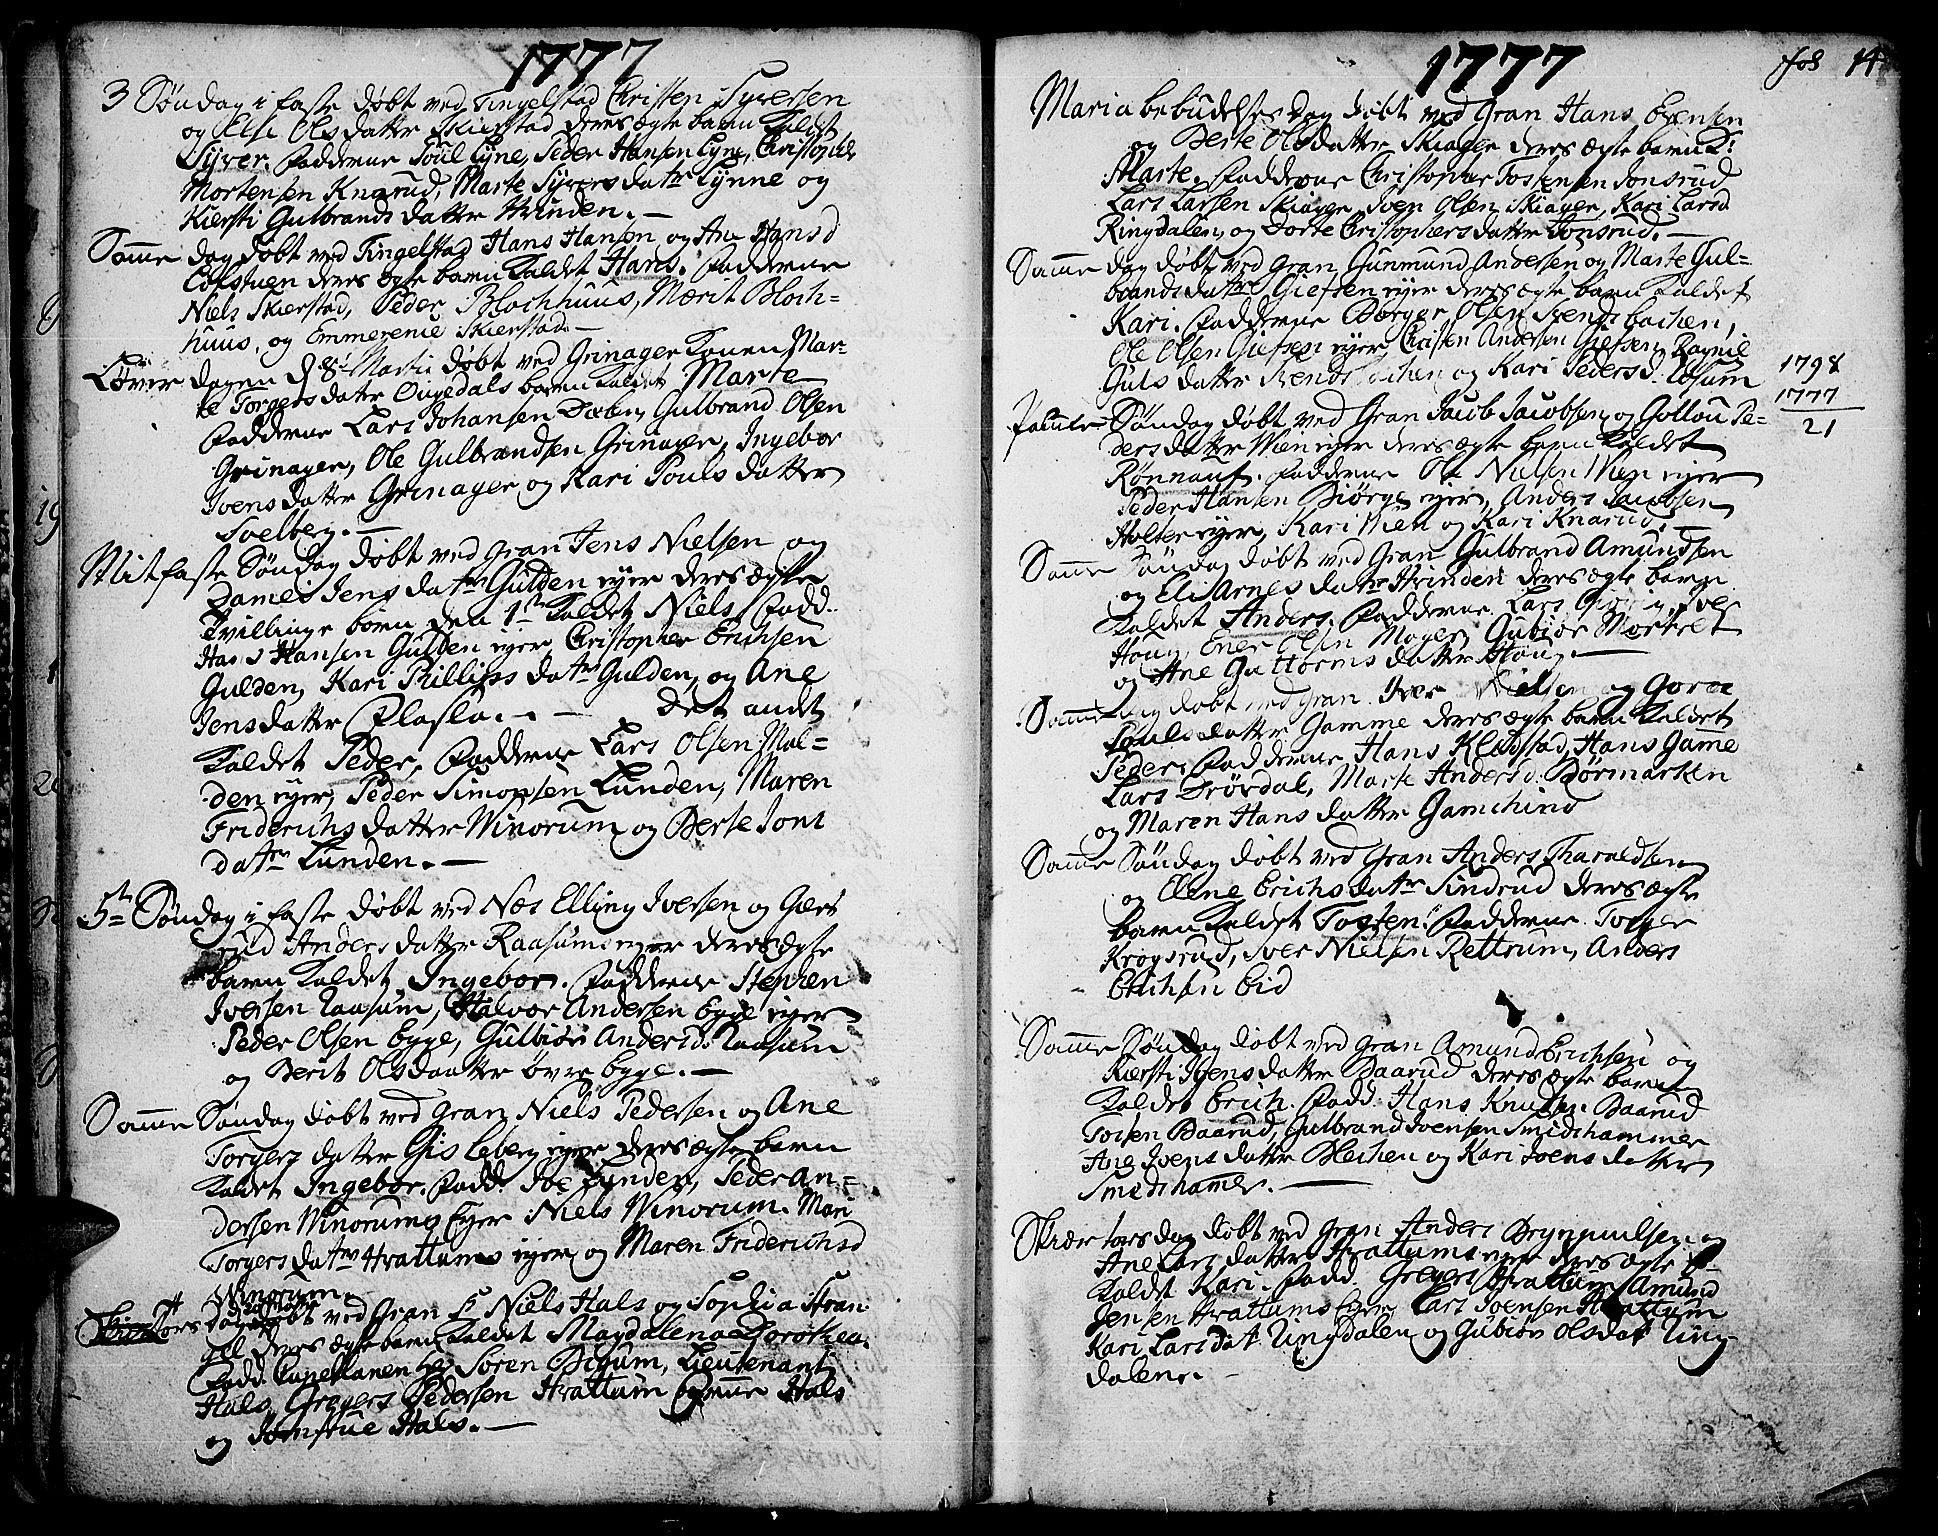 1777
3 Søndag i faste døbt ved Tingelstad Christen Syversen
og Else Olsdatter Skierstad deres ægte barn kaldet
Syver. Fadderne Poul Lyne, Peder Hansen Lyne, Christopher
Mortensen Knarud, Marte Syversdatr Lynne og
Kiersti Gulbrandsdatter Hvinden. —
Samme dag døbt ved Tingelstad Hans Hansen og Ane Hansd
Lofstuen deres ægte barn kaldet Hans. Fadderne
Niels Skierstad, Peder Blochhuus, Marit Bloch=
huus, og Emmerenie Skierstad. —
Løverdagen d 8de Martii døbt ved Grinager Konen Mar-
te Torgersdatter Dugedals barn kaldet Marte
Fadderne Lars Johansen Dælen, Gulbrand Olsen
Grinager, Ole Gulbrandsen Grinager, Ingebor
Ivensdatter Grinager og Kari Poulsdatter
Solberg. —
Mitfaste Søndag døbt ved Gran Jens Nielsen og
Damis Jensdatr Gulden eyer deres ægte
Tvillinge børn den 1te kaldet Niels, Fadd.
Hans Hansen Gulden eyer, Christopher Erichsen
Gulden, Kari Phillipsdatr Gulden, og Ane
Jensdatter Flasla. — det andet
kaldet Peder, Fadderne Lars Olsen Mol=
den eyer, Peder Simonsen Lunden, Maren
Friderichsdatter Winorum og Berte Jons
datr Lunden. —
5te Søndag i faste døbt ved Næs Elling Iversen og Giert
rud Andersdatter Raasums eyer deres ægte
barn kaldet Ingebor. Fadderne Stephen
Iversen Raasum, Halvor Andersen Egge eyer
Peder Olsen Egge, Gulbiør Andersd. Raasum
og Berit Olsdaatter øvre Egge. —
Samme Søndag døbt ved Gran Niels Pedersen og Ane
Torgersdatter Gisleberg eyer deres ægte barn
kaldet Ingebor. Fadd: Joe Lynden, Peder An=
dersen Winorums Eyer Niels Winorum. Mari
Torgersdatr Hvattums eyer og Maren Friderichsd
Winorum.
døbt ved Gran Niels Hals og Sophia
gel deres ægte barn kaldet Magdalena Dorothea.
Fadd. Capellanen Hr Søren Bugum, Lieutenant
Hals, Gregers Pedersen Hvattum Hals
og Jomfrue Hals. —
1777
fol 14
Maria bebudelses Dag døbt ved Gran Hans Evensen
og Berte Olsdatter Skiager deres ægte barn K:
Marte. Fadderne Christopher Tostensen Jonsrud
Lars Larsen Skiager, Iven Olsen Skiager, Kari Larsd
Ringdalen, og Dorte Christophersdatter Jonsrud. —
Samme dag døbt ved Gran Gunmund Andersen og Marte Gul=
brandsdatr Giefsen eyer deres ægte barn kaldet
Kari. Fadderne Børger Olsen Svendsbachen,
Ole Olsen Giefsen eyer, Christen Andersen Giefsen, Ragnil
Gulsdatter Svendsbachen og Kari Pedersd. Losum
1798
1777
21
Palme Søndag døbt ved Gran Jacob Jacobsen og Gollou Pe-
dersdatter Wien eyer deres ægte barn kaldet
Rønnauf. Fadderne Ole Nielsen Wien eyer
Peder Hansen Biørge eyer, Anders Jacobsen
Holter eyer, Kari Wien og Kari Knarud. —
Samme Søndag døbt ved Gran Gulbrand Amundsen
og Eli Arnesdatr Hvinden deres ægte barn
kaldet Anders. Fadderne Lars Iver
Houg, Ener Olsen Moger, Gubiør Morket
og Ane Guttormsdatter Houg. —
Samme dag døbt ved Gran Iver Nielsen og Goroe
Poulsdatter Gamme deres ægte barn kaldet
Peder. Fadderne Hans Klæstad, Hans Game
Lars Drøvdal, Marte Andersd. Børmarken
og Maren Hansdatter Gamehind
Samme Søndag døbt ved Gran Anders Tharaldsen
og Elene Erichsdatr Sindrud deres ægte
barn kaldet Tosten. Fadderne Torger
Krogsrud, Iver Nielsen Rettrum, Anders
Erichsen Eid
Samme Søndag døbt ved Gran Amund Erichsen og
Kiersti Ivensdatter Baarud deres ægte barn
kaldet Erich. Fadd: Hans Knudsen Baarud
Tosten Baarud, Gulbrand Ivensen Smidshammer
Ane Ivensdatter Blechen og Kari Ivensdatter
Smidshamer. —
Skiær torsdag døbt ved Gran Anders Brynnulsen og
Ane Larsdatter Hvattums eyer deres ægte B
kaldet Kari. Fadd. Gregers Hvattum, Amund
Jensen Hvattums Eyer, Lars Ivensen Hvattum
Kari Larsdat Ringdalen og Gubiør Olsdat Ring-
dalen. —